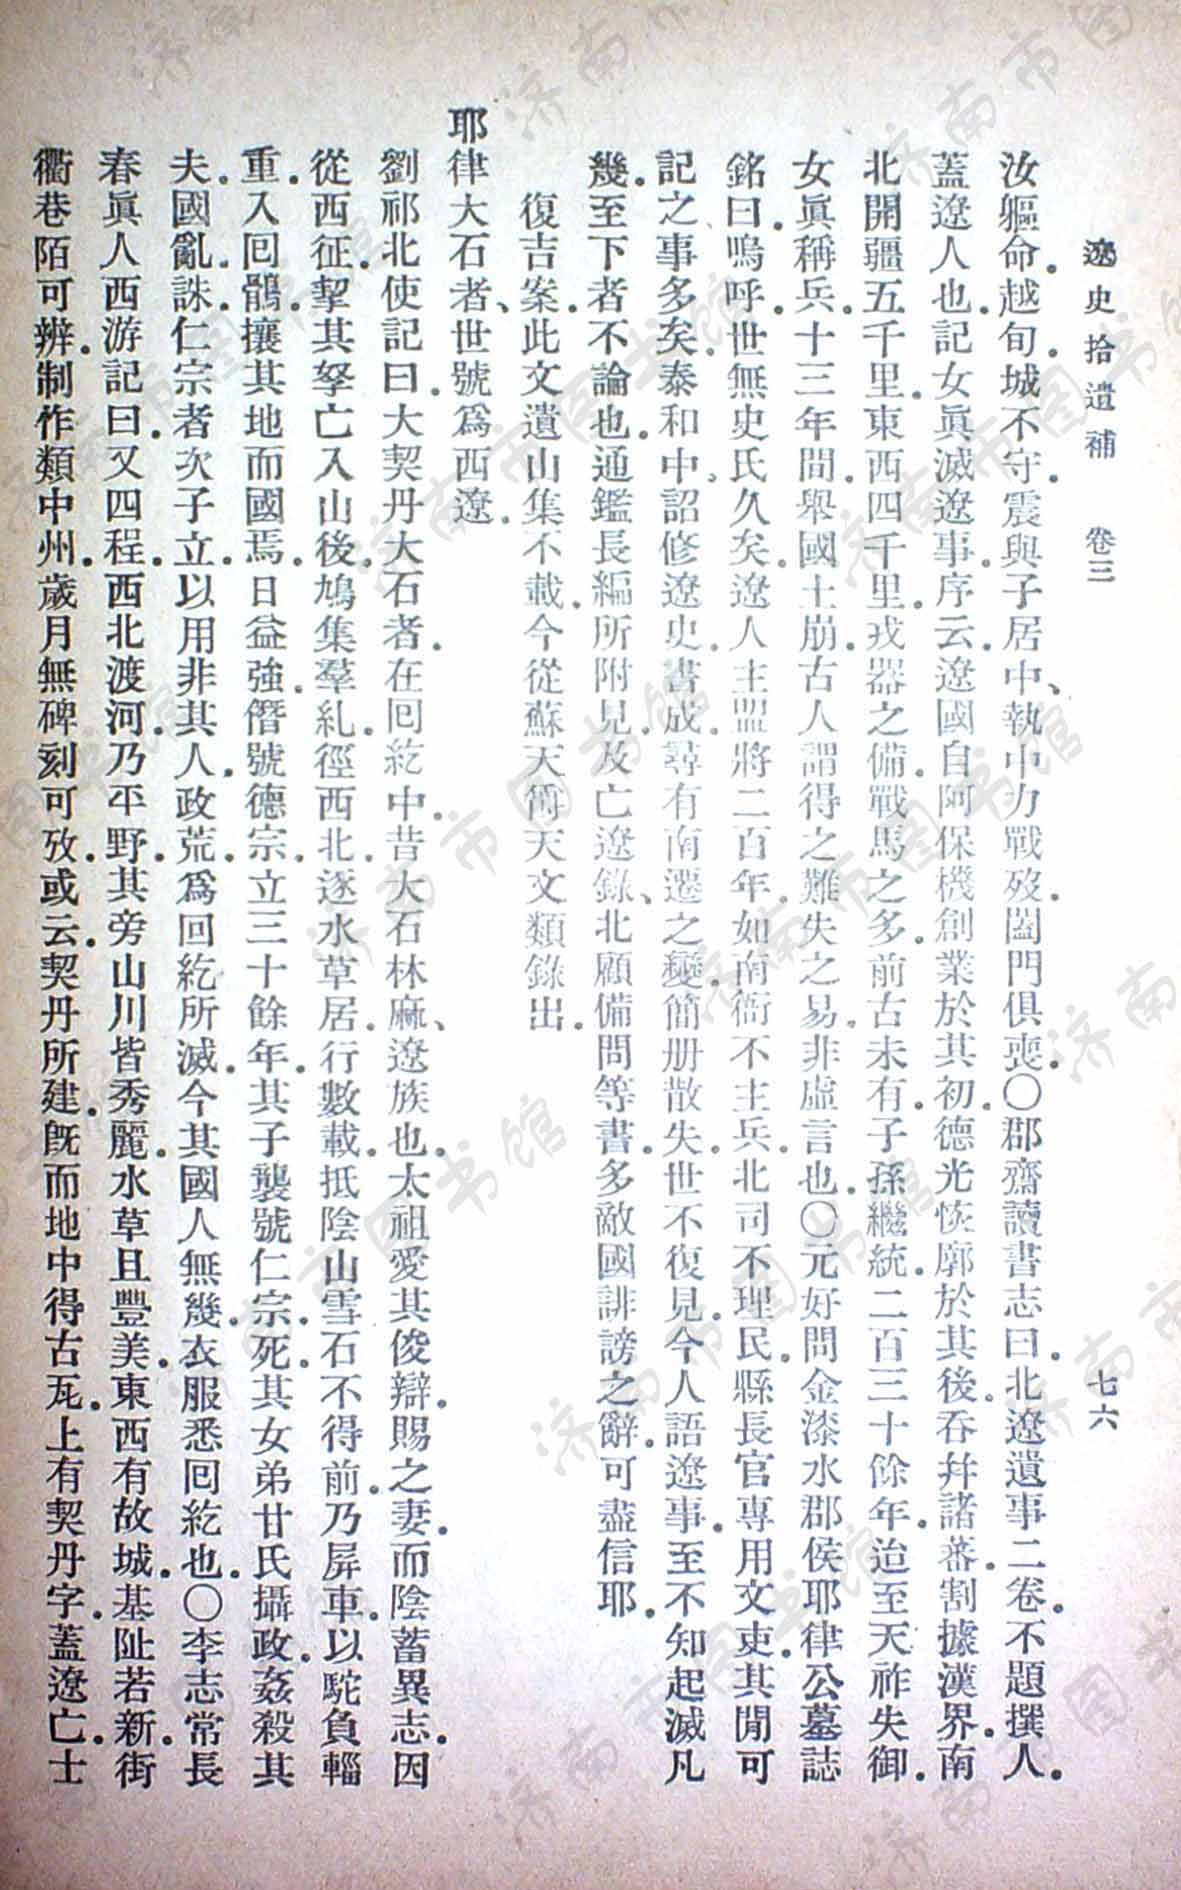 遼史拾遺補　卷三　七六
汝軀命。越旬。城不守。震與子居中、執中力戰歿。闔門俱喪。〇郡齋讀書志曰。北遼遺事二卷。不題撰人。
蓋遼人也。記女眞滅遼事。序云。遼國自阿保機創業於其初。德光恢廓於其後。吞幷諸蕃。割據漢界。南
北開疆五千里。東西四千里。戎器之備。戰馬之多。前古未有。子孫繼統。二百三十餘年。迨至天祚失御。
女眞稱兵。十三年間。舉國土崩。古人謂得之難失之易。非虛言也。〇元好問金漆水郡侯耶律公墓誌
銘曰。嗚呼。世無史氏久矣。遼人主盟將二百年。如南衙不主兵。北司不理民。縣長官專用文吏。其閒可
記之事多矣。泰和中。詔修遼史。書成。尋有南遷之變。簡册散失。世不復見。今人語遼事。至不知起滅凡
幾。至下者不論也。通鑑長編所附見。及亡遼錄、北顧備問等書。多敵國誹謗之辭。可盡信耶。
復吉案。此文遺山集不載。今從蘇天爵天文類錄出。
耶律大石者、世號爲西遼。
劉祁北使記曰。大契丹大石者。在回紇中。昔大石林麻、遼族也。太祖愛其俊辯。賜之妻。而陰蓄異志。因
從西征。挈其孥亡入山後。鳩集羣糺。徑西北。逐水草居。行數載。抵陰山。雪石不得前。乃屏車。以駝負輜
重。入回鶻。攘其地而國焉。日益強。僭號德宗。立三十餘年。其子襲號仁宗。死。其女弟甘氏攝政。姦殺其
夫。國亂。誅。仁宗者次子立。以用非其人。政荒。爲回紇所滅。今其國人無幾。衣服悉回紇也。〇李志常長
春眞人西游記曰。又四程。西北渡河。乃平野。其旁山川皆秀麗。水草且豐美。東西有故城。基阯若新。街
衢巷陌可辨。制作類中州。歲月無碑刻可攷。或云。契丹所建。旣而地中得古瓦。上有契丹字。蓋遼亡士